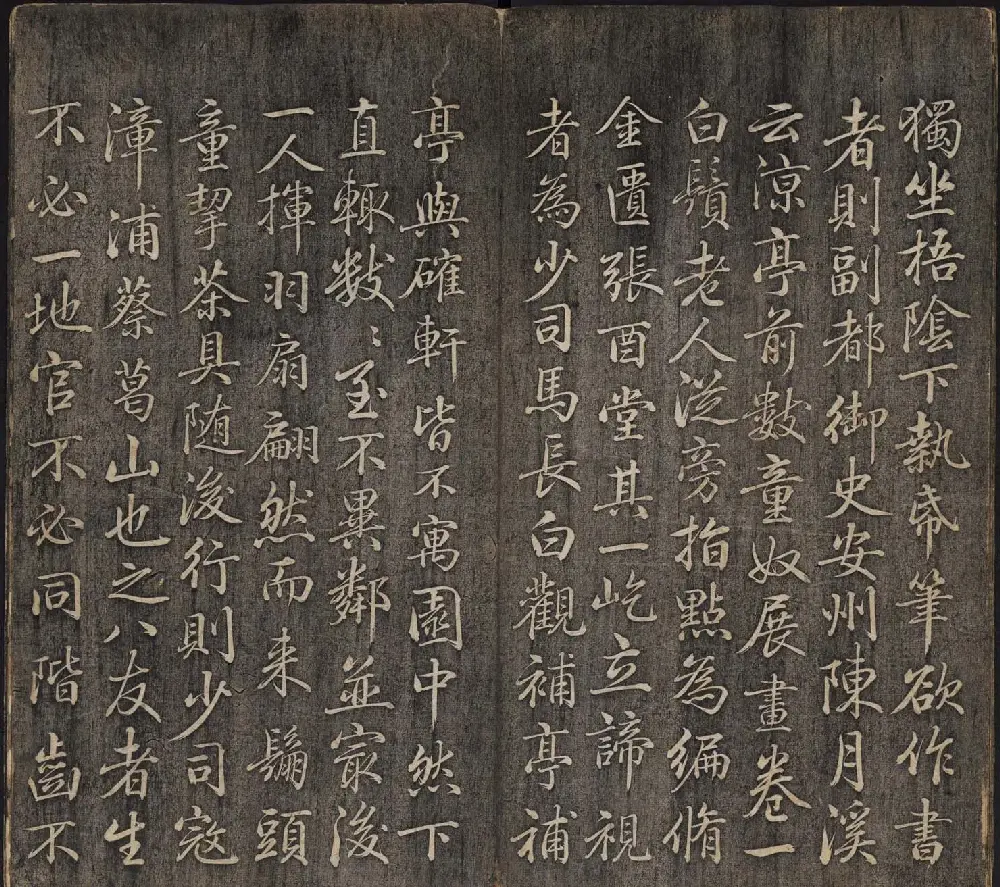 獨坐梧陰下執帋筆欲作書
者則副都御史安州陳月溪
云涼亭前數童奴展畫卷一
白鬚老人從旁指點為編脩
金匱張酉堂其一屹立諦視
者為少司馬長白觀補亭補
亭與確軒皆不寓園中然下
直輒數〻至不異鄰並宻後
一人揮羽扇翩然而来鬅頭
童挈茶具随後行則少司寇
漳浦蔡葛山也之八友者生
不必一地官不必同階齒不